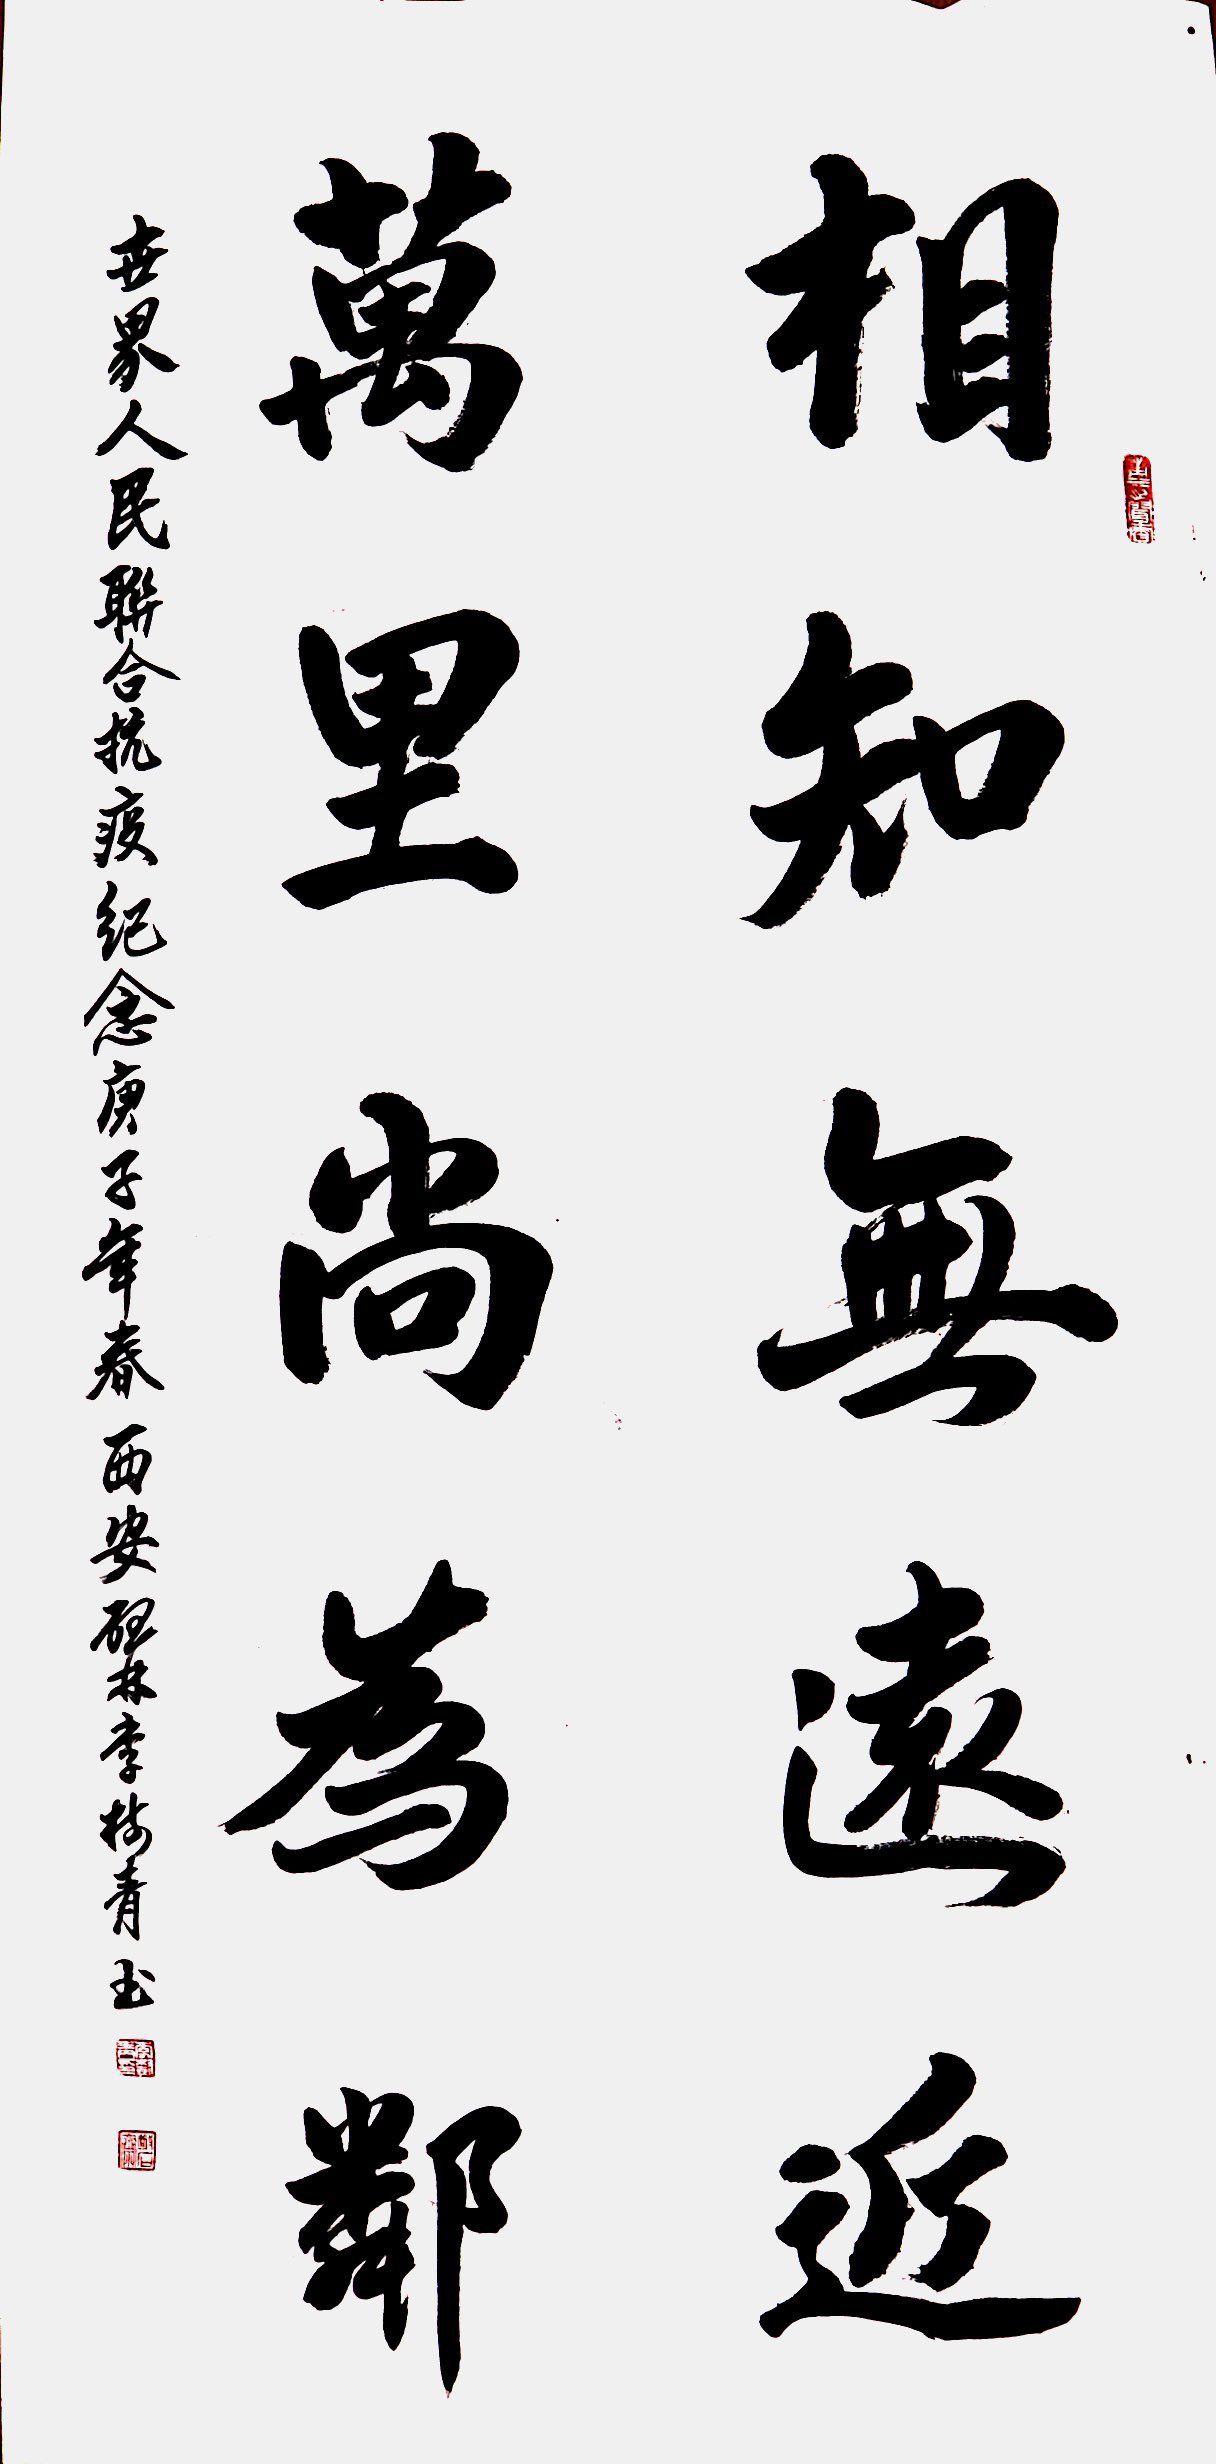 相知無遠近
萬里尚為鄰
世界人民聯合抗疫紀念庚子年春西安碑林李樹青书